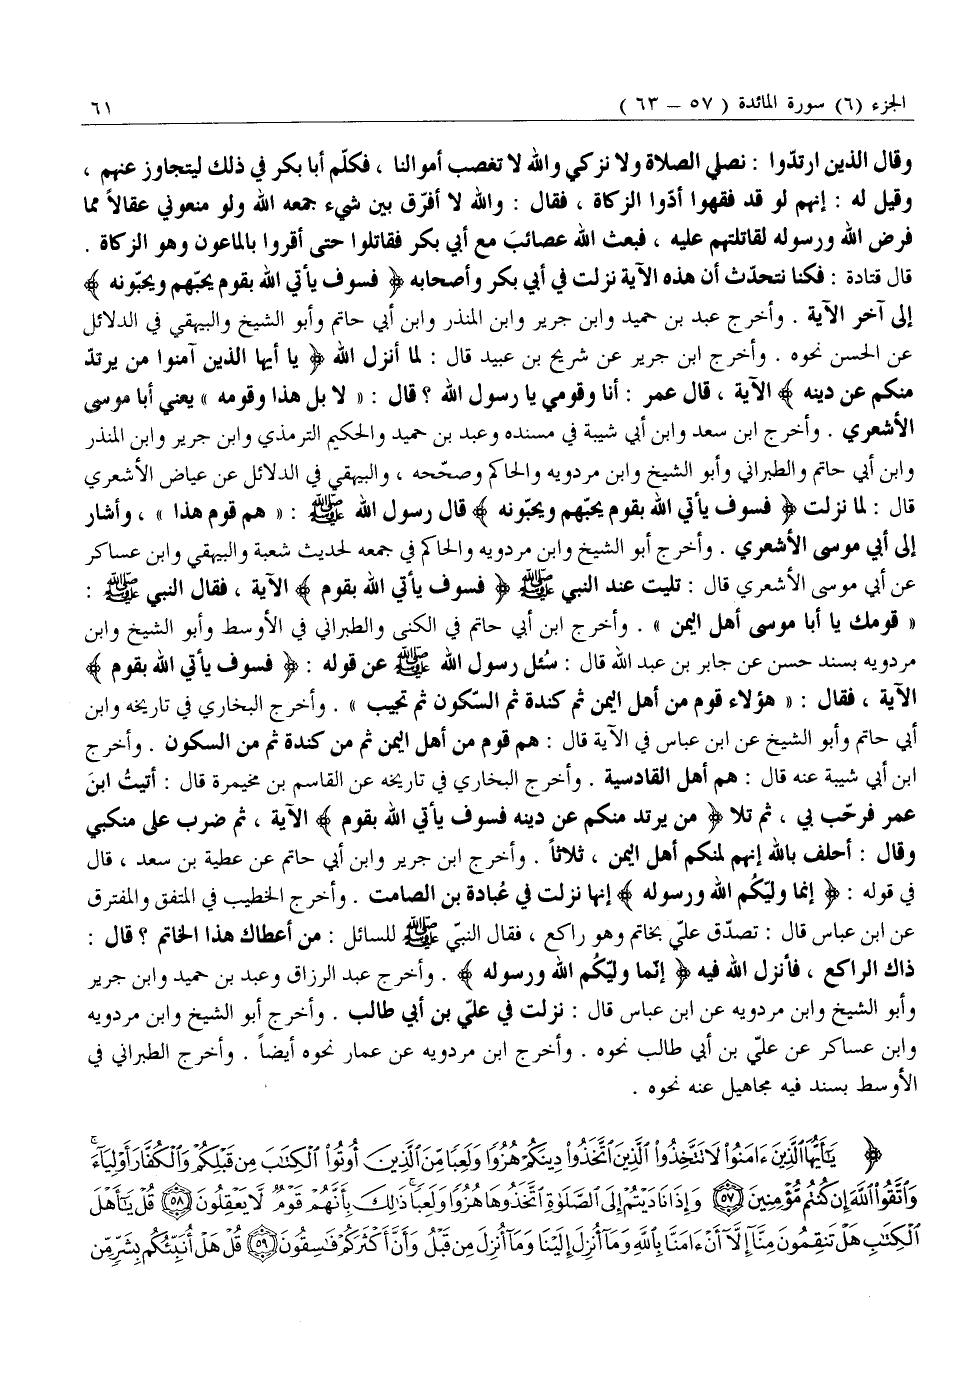 الجزء (٦) سورة المائدة ( ٥٧ – ٦٣ ) ٦١
وقال الذين ارتدّوا : نصلي الصلاة ولا نزكي والله لا تغصب أموالنا ، فكلّم أبا بكر في ذلك ليتجاوز عنهم ،
وقيل له : إنهم لو قد فقهوا أدّوا الزكاة ، فقال : والله لا أفرّق بين شيء جمعه الله ولو منعوني عقالاً مما
فرض الله ورسوله لقاتلتهم عليه ، فبعث الله عصائبَ مع أبي بكر فقاتلوا حتى أقروا بالماعون وهو الزكاة .
قال قتادة : فكنا نتحدّث أن هذه الآية نزلت في أبي بكر وأصحابه ﴿ فسوف يأتي الله بقوم يحبّهم ويحبّونه ﴾
إلى آخر الآية . وأخرج عبد بن حميد وابن جرير وابن المنذر وابن أبي حاتم وأبو الشيخ والبيهقي في الدلائل
عن الحسن نحوه . وأخرج ابن جرير عن شريح بن عبيد قال : لما أنزل الله ﴿ يا أيها الذين آمنوا من يرتدّ
منكم عن دينه ﴾ الآية ، قال عمر : أنا وقومي يا رسول الله ؟ قال : « لا بل هذا وقومه » يعني أبا موسى
الأشعري . وأخرج ابن سعد وابن أبي شيبة في مسنده وعبد بن حميد والحكيم الترمذي وابن جرير وابن المنذر
وابن أبي حاتم والطبراني وأبو الشيخ وابن مردويه والحاكم وصحّحه ، والبيهقي في الدلائل عن عياض الأشعري
قال : لما نزلت ﴿ فسوف يأتي الله بقوم يحبّهم ويحبّونه ﴾ قال رسول الله ﷺ : « هم قوم هذا » ، وأشار
إلى أبي موسى الأشعري . وأخرج أبو الشيخ وابن مردويه والحاكم في جمعه لحديث شعبة والبيهقي وابن عساكر
عن أبي موسى الأشعري قال : تليت عند النبي ﷺ ﴿ فسوف يأتي الله بقوم ﴾ الآية ، فقال النبي ﷺ :
« قومك يا أبا موسى أهل اليمن » . وأخرج ابن أبي حاتم في الكنى والطبراني في الأوسط وأبو الشيخ وابن
مردويه بسند حسن عن جابر بن عبد الله قال : سُئل رسول الله ﷺ عن قوله : ﴿ فسوف يأتي الله بقوم ﴾
الآية ، فقال : « هؤلاء قوم من أهل اليمن ثم كندة ثم السّكون ثم تجيب » . وأخرج البخاري في تاريخه وابن
أبي حاتم وأبو الشيخ عن ابن عباس في الآية قال : هم قوم من أهل اليمن ثم من كندة ثم من السكون . وأخرج
ابن أبي شيبة عنه قال : هم أهل القادسية . وأخرج البخاري في تاريخه عن القاسم بن مخيمرة قال : أتيتُ ابنَ
عمر فرحّب بي ، ثم تلا ﴿ من يرتد منكم عن دينه فسوف يأتي الله بقوم ﴾ الآية ، ثم ضرب على منكبي
وقال : أحلف بالله إنهم لمنكم أهل اليمن ، ثلاثاً . وأخرج ابن جرير وابن أبي حاتم عن عطية بن سعد ، قال
في قوله : ﴿ إنما وليّكُم الله ورسوله ﴾ إنها نزلت في عُبادة بن الصامت . وأخرج الخطيب في المتفق والمفترق
عن ابن عباس قال : تصدّق عليّ بخاتم وهو راكع ، فقال النبيّ ﷺ للسائل : من أعطاك هذا الخاتم ؟ قال :
ذاك الراكع ، فأنزل الله فيه ﴿ إنّما وليّكُم الله ورسوله ﴾ . وأخرج عبد الرزاق وعبد بن حميد وابن جرير
وأبو الشيخ وابن مردويه عن ابن عباس قال : نزلت في عليّ بن أبي طالب . وأخرج أبو الشيخ وابن مردويه
وابن عساكر عن عليّ بن أبي طالب نحوه . وأخرج ابن مردويه عن عمار نحوه أيضاً . وأخرج الطبراني في
الأوسط بسند فيه مجاهيل عنه نحوه .
﴿ يَٰٓأَيُّهَا ٱلَّذِينَ ءَامَنُوا۟ لَا تَتَّخِذُوا۟ ٱلَّذِينَ ٱتَّخَذُوا۟ دِينَكُمْ هُزُوًا وَلَعِبًا مِّنَ ٱلَّذِينَ أُوتُوا۟ ٱلْكِتَٰبَ مِن قَبْلِكُمْ وَٱلْكُفَّارَ أَوْلِيَآءَ ۚ
وَٱتَّقُوا۟ ٱللَّهَ إِن كُنتُم مُّؤْمِنِينَ ٥٧ وَإِذَا نَادَيْتُمْ إِلَى ٱلصَّلَوٰةِ ٱتَّخَذُوهَا هُزُوًا وَلَعِبًا ۚ ذَٰلِكَ بِأَنَّهُمْ قَوْمٌ لَّا يَعْقِلُونَ ٥٨ قُلْ يَٰٓأَهْلَ
ٱلْكِتَٰبِ هَلْ تَنقِمُونَ مِنَّآ إِلَّآ أَنْ ءَامَنَّا بِٱللَّهِ وَمَآ أُنزِلَ إِلَيْنَا وَمَآ أُنزِلَ مِن قَبْلُ وَأَنَّ أَكْثَرَكُمْ فَٰسِقُونَ ٥٩ قُلْ هَلْ أُنَبِّئُكُم بِشَرٍّ مِّن